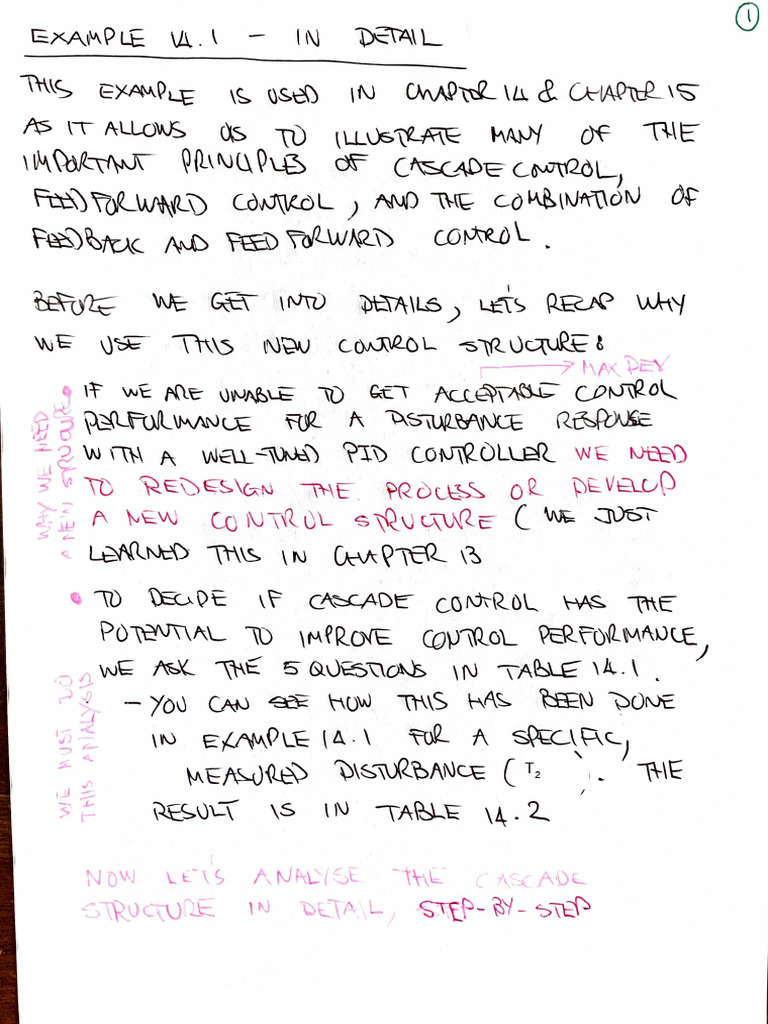 1
EXAMPLE 14.1 - IN DETAIL
THIS EXAMPLE IS USED IN CHAPTER 14 & CHAPTER 15
AS IT ALLOWS US TO ILLUSTRATE MANY OF THE
IMPORTANT PRINCIPLES OF CASCADE CONTROL,
FEEDFORWARD CONTROL, AND THE COMBINATION OF
FEEDBACK AND FEEDFORWARD CONTROL.
BEFORE WE GET INTO DETAILS, LET'S RECAP WHY
WE USE THIS NEW CONTROL STRUCTURE:
MAX DEV
WHY WE NEED
A NEW STRUCTURE
• IF WE ARE UNABLE TO GET ACCEPTABLE CONTROL
PERFORMANCE FOR A DISTURBANCE RESPONSE
WITH A WELL-TUNED PID CONTROLLER WE NEED
TO REDESIGN THE PROCESS OR DEVELOP
A NEW CONTROL STRUCTURE (WE JUST
LEARNED THIS IN CHAPTER 13
• TO DECIDE IF CASCADE CONTROL HAS THE
POTENTIAL TO IMPROVE CONTROL PERFORMANCE,
WE ASK THE 5 QUESTIONS IN TABLE 14.1.
WE MUST DO
THIS ANALYSIS
- YOU CAN SEE HOW THIS HAS BEEN DONE
IN EXAMPLE 14.1 FOR A SPECIFIC,
MEASURED DISTURBANCE (T2). THE
RESULT IS IN TABLE 14.2
NOW LET'S ANALYSE THE CASCADE
STRUCTURE IN DETAIL, STEP-BY-STEP